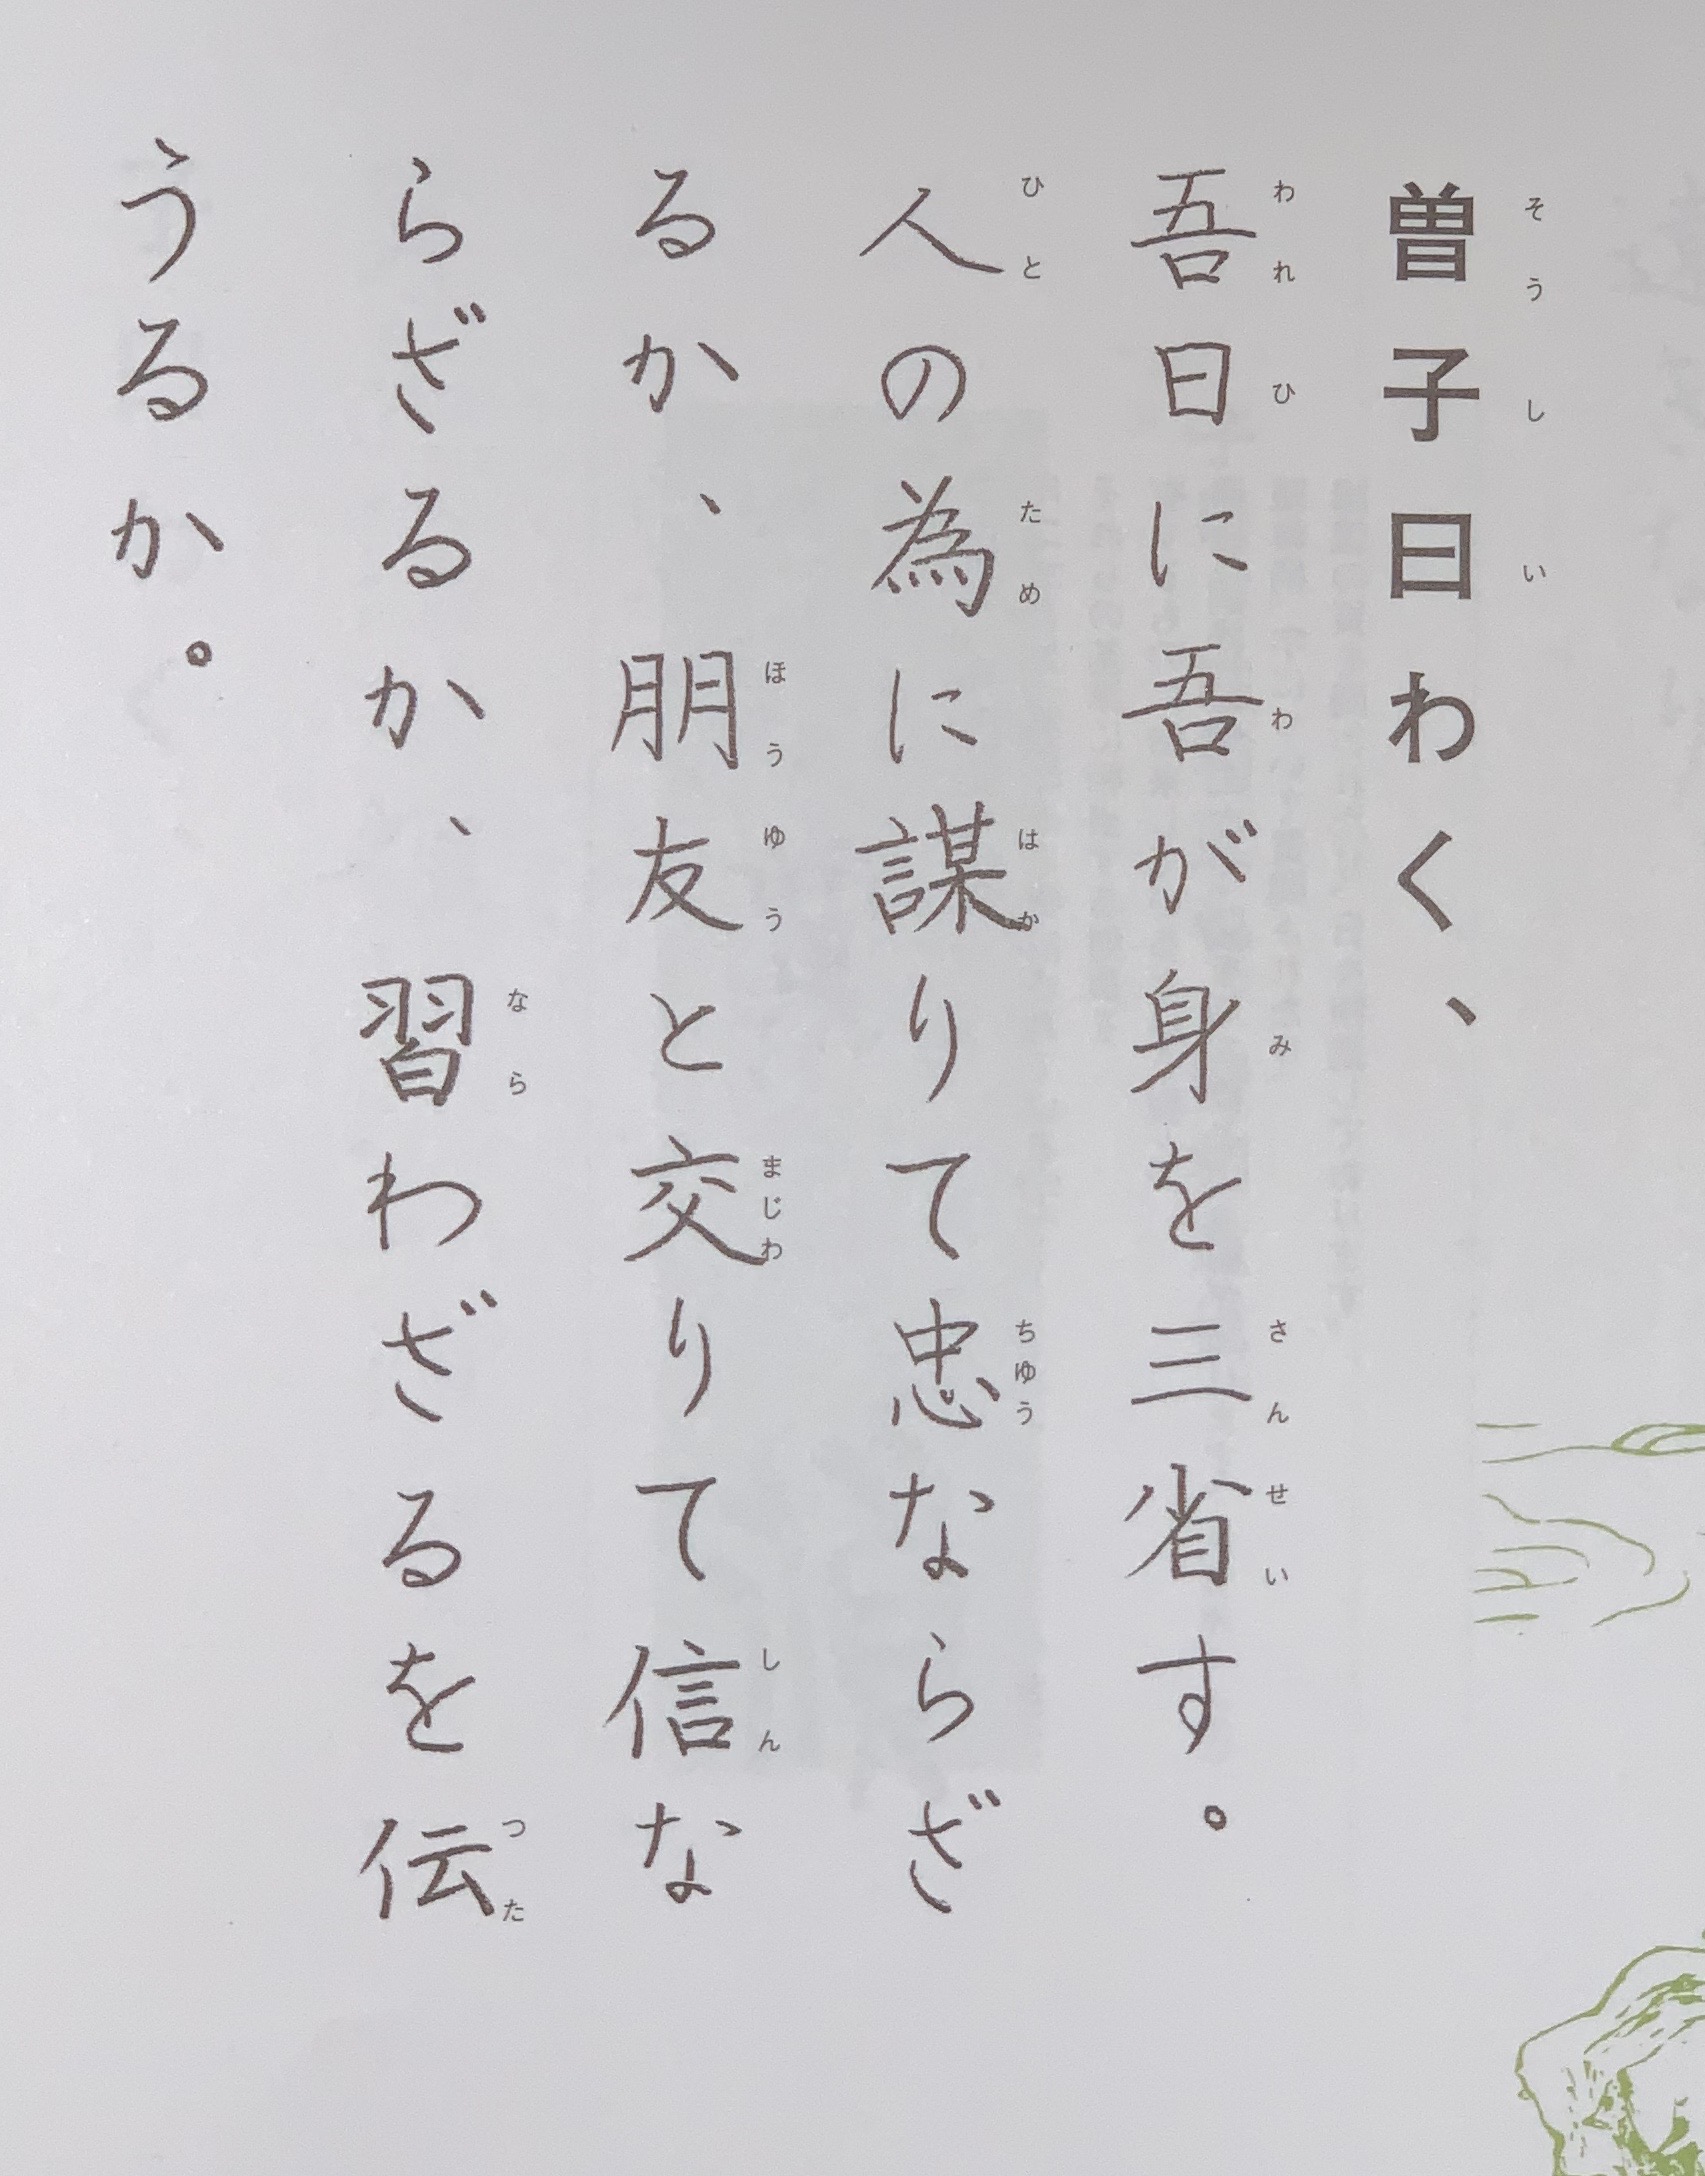 曽子曰わく、
吾日に吾が身を三省す。
人の為に謀りて忠ならざ
るか、朋友と交りて信な
らざるか、習わざるを伝
うるか。